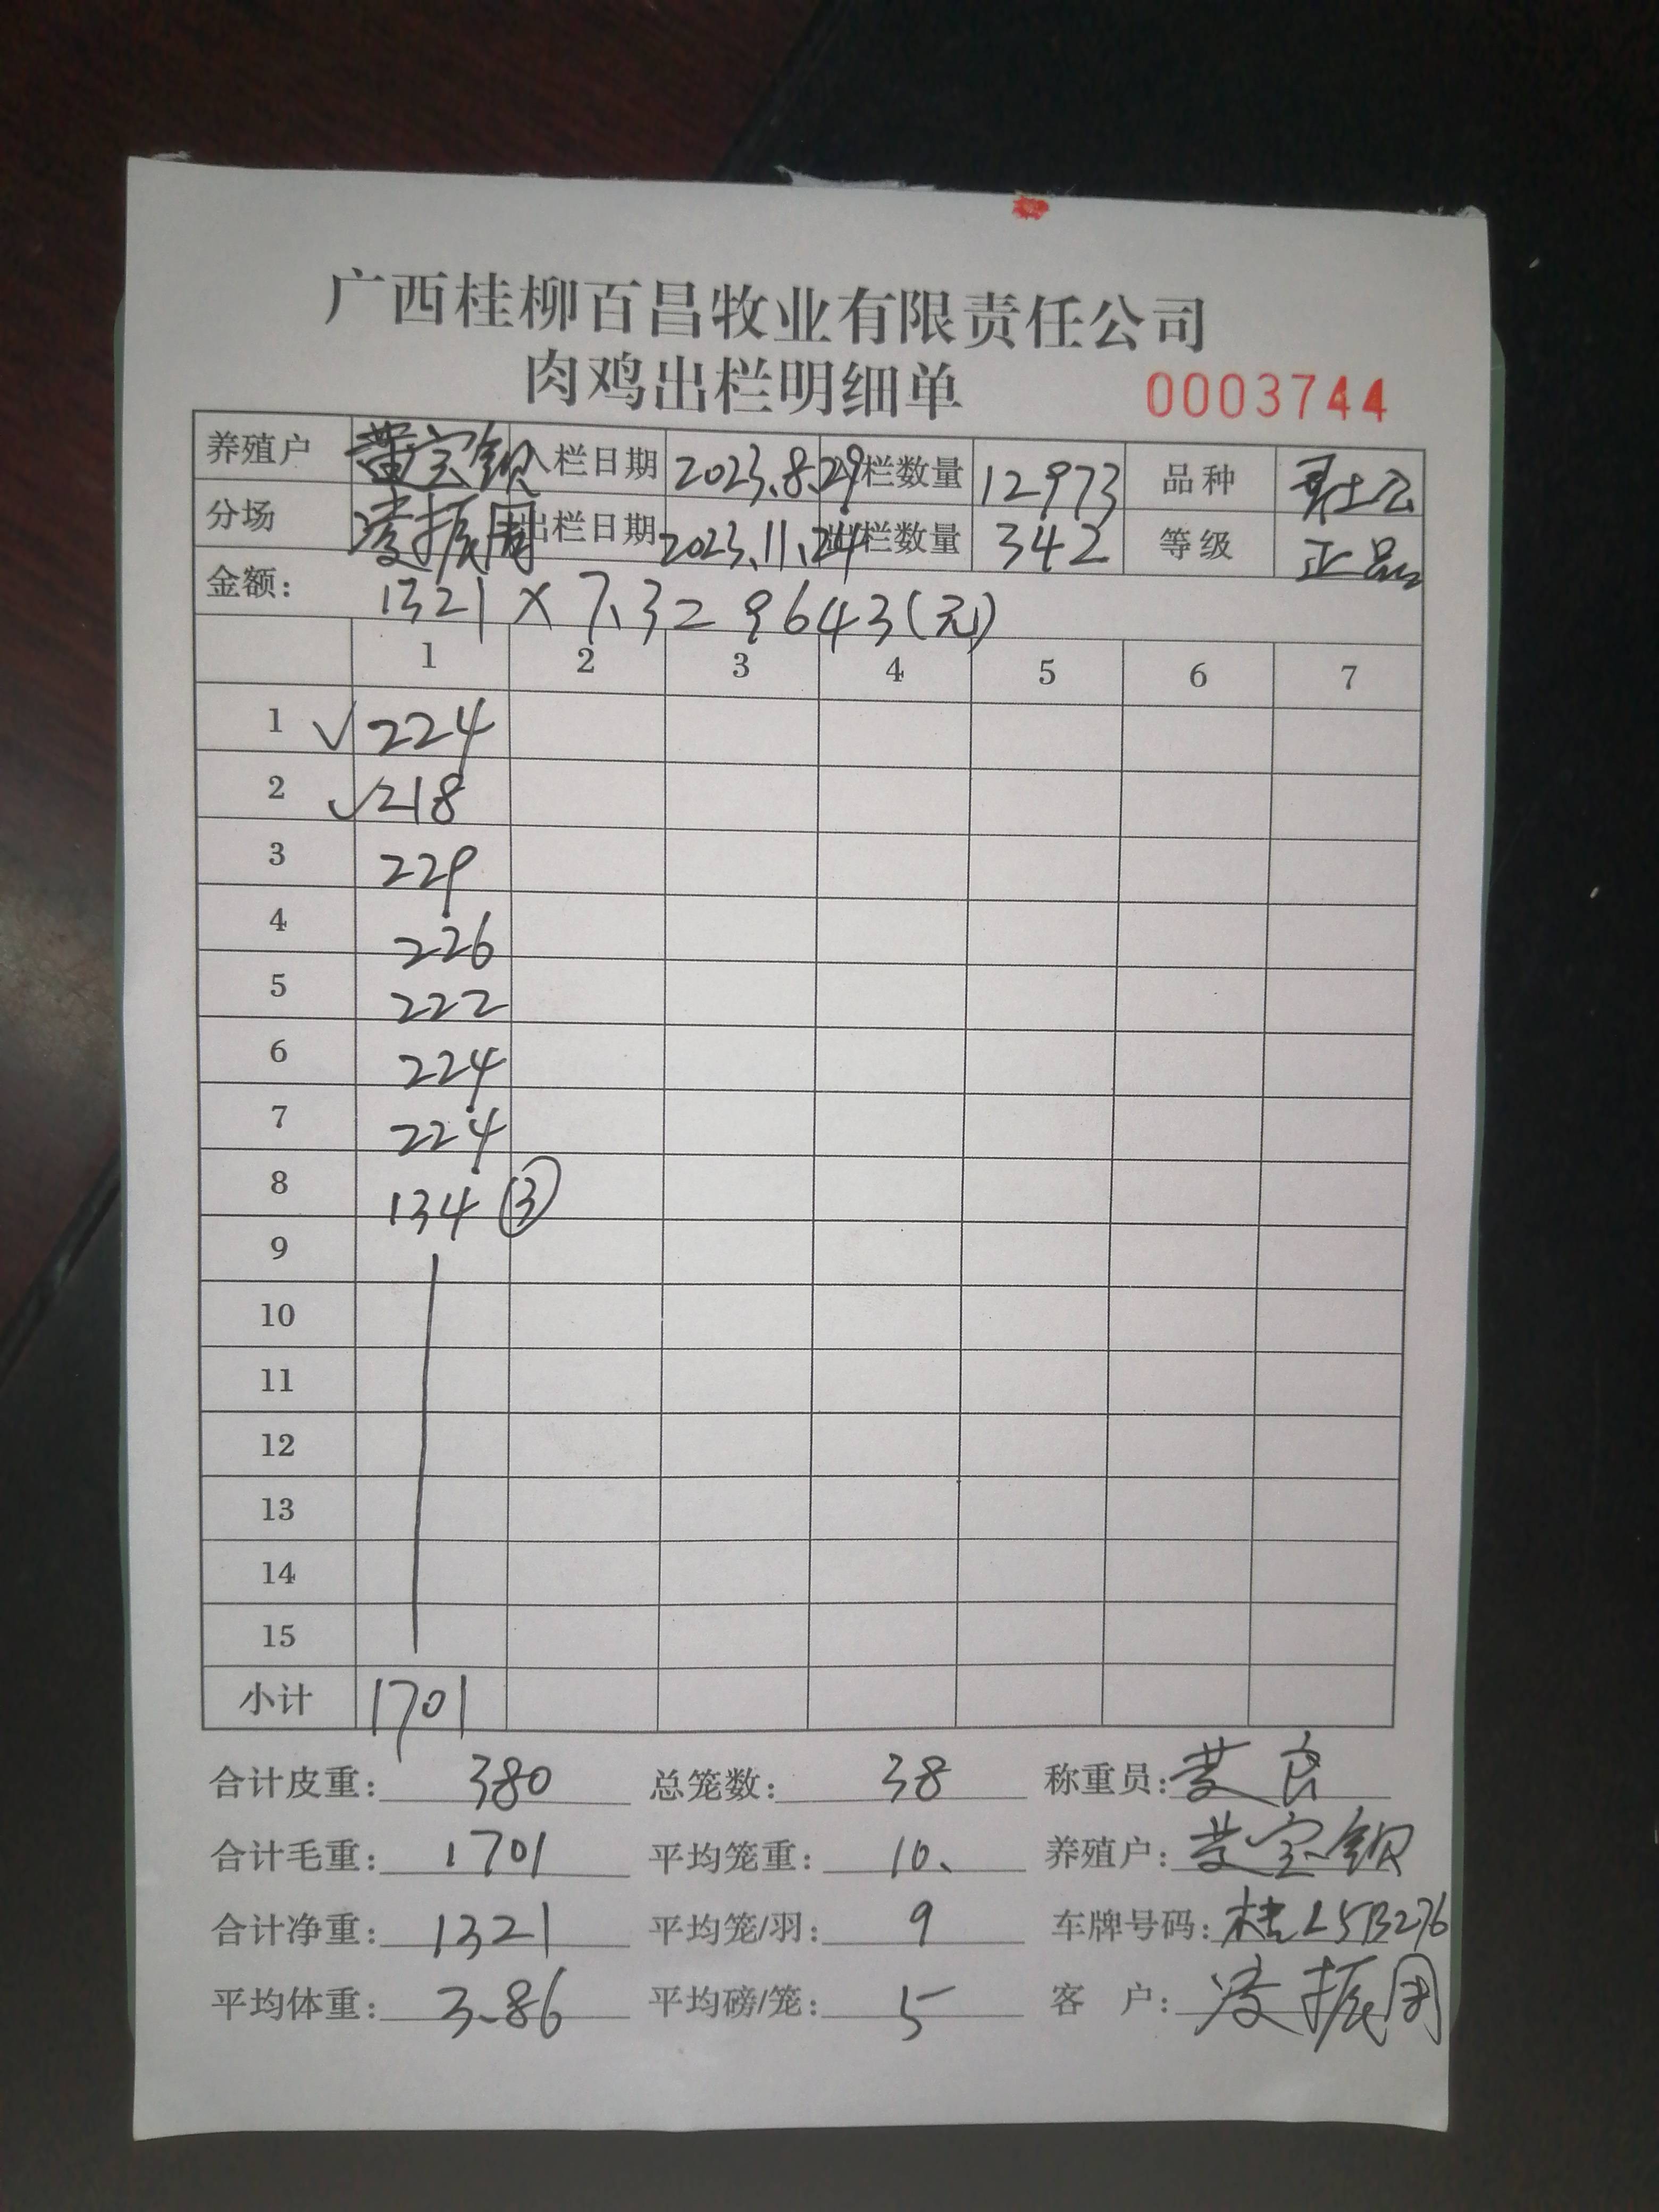 广西桂柳百昌牧业有限责任公司
肉鸡出栏明细单 0003744
养殖户 黄宝钡 入栏日期 2023.8.29 入栏数量 12973 品种
分场 凌振周 出栏日期 2023.11.24 出栏数量 342 等级 正品
金额: 1321×7.3=9643(元)
1 2 3 4 5 6 7
1 √224
2 √218
3 229
4 226
5 222
6 224
7 224
8 134 ③
9
10
11
12
13
14
15
小计 1701
合计皮重: 380 总笼数: 38 称重员:
合计毛重: 1701 平均笼重: 10. 养殖户: 黄宝钡
合计净重: 1321 平均笼/羽: 9 车牌号码: 桂L5B276
平均体重: 3.86 平均磅/笼: 5 客户: 凌振周